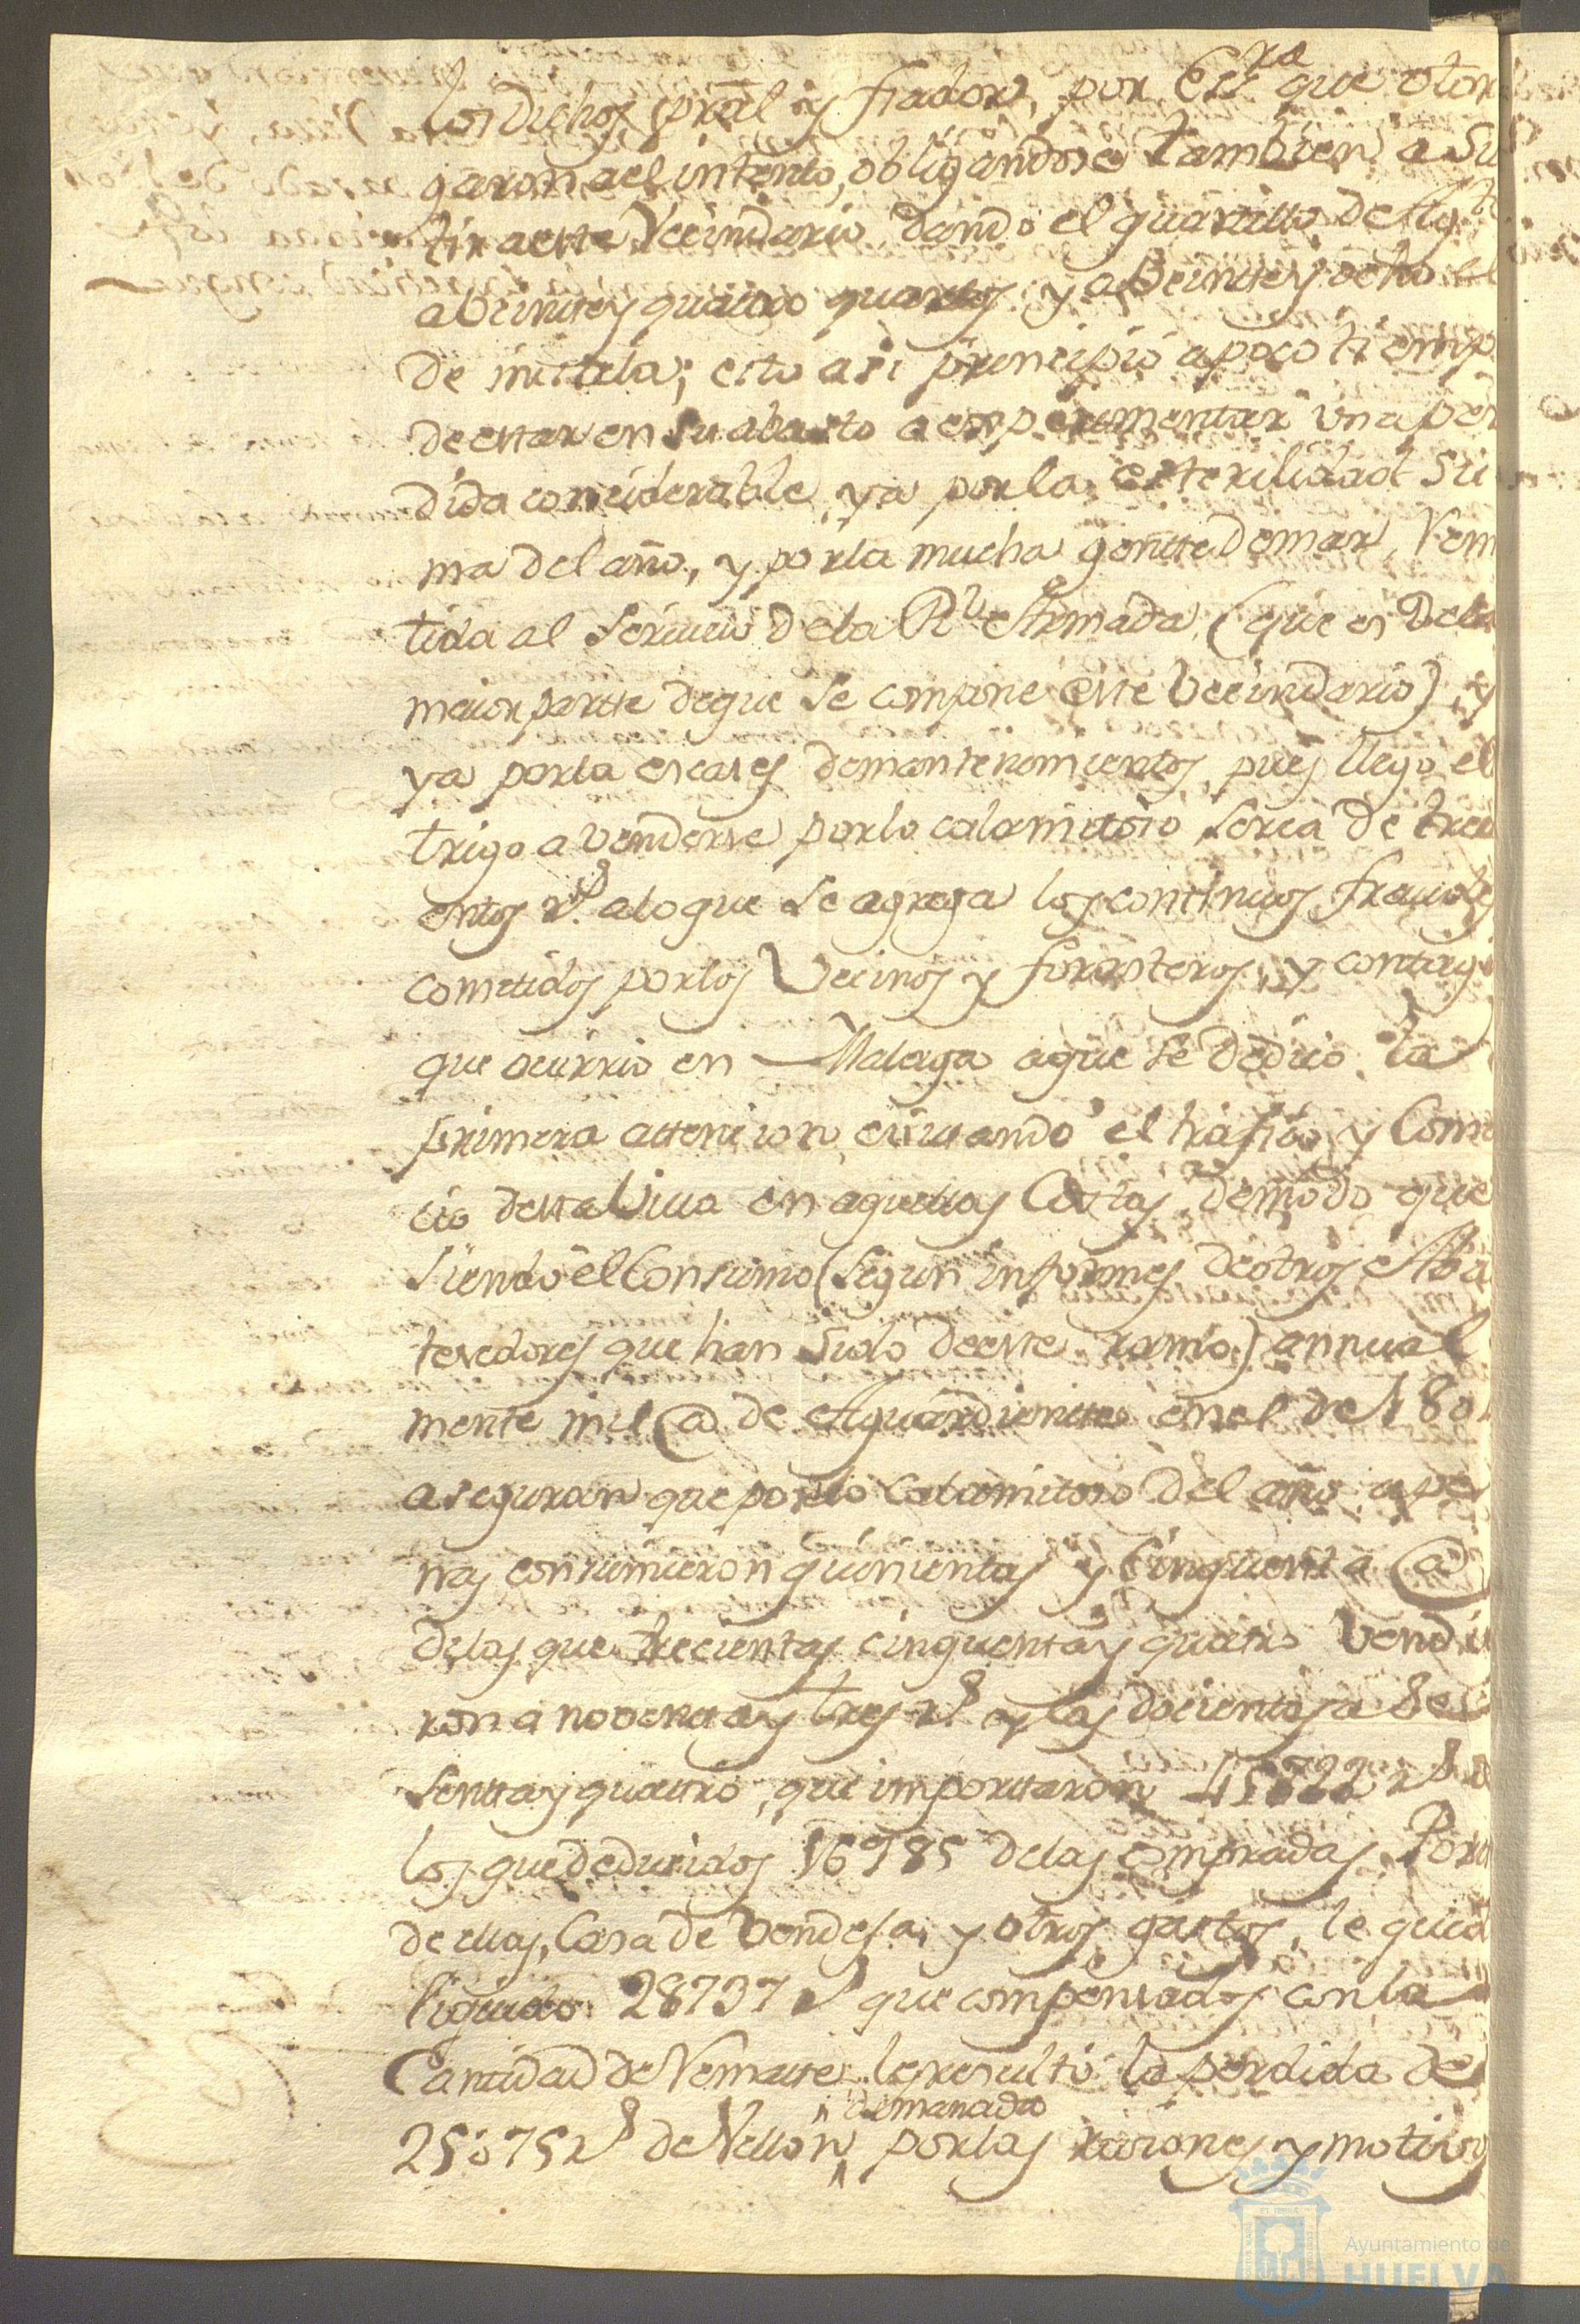 los Dichos pral y fiador, por Escra que otor
garon ael intento, obligandose tambien a Su
tir aeste Vecindario dando el quartillo de Agte
a beinttey quatro quartos, y a Beinttey ocho el
de mistela; esto asi principio a poco tiemp
de estar en su abasto a experimentar una per
dida considerable, ya por la esterilidad Su
ma del año, y por la mucha gentte de mar, Remi
tida al Servicio de la Rl Armada (que es de la
maior partte de que se compone este Vecindario), y
ya por la escases de mantenimientos, pues llego el
trigo a venderse por lo calamitoso serca de trec
entos rs. a lo que se agrega los continuos fraudes
cometidos por los Vecinos y forasteros, y contagi
que ocurrio en Malaga a que se dedico la
primera attencion, evitando el trafico y Come
cio de esta Villa en aquellas Costas, de modo que
siendo el Consumo (segun informes de otros Abas
tesedores que han sido de este ramo) annual
mente mil @ de Aguardientte en el de 180
aseguran que por lo calamitoso del año ape
nas consumieron quinientas y Cinquenta @
de las que trecientas cinquenta y quatro vendie
ron a noventa y tres rs y las docientas a se
sentta y quattro, que importaron 45722 rs d
los que deducidos 16985 de las compradas, Porte
de ellas, Casa de Bendeja, y otros gastos, le qued
liquido 28737 rs que compensados con la
Cantidad de Rematte, le resultó la perdida de
25075 rs de Vellon
demanada
por las raiones y motivos
Ayuntamiento de
HUELVA